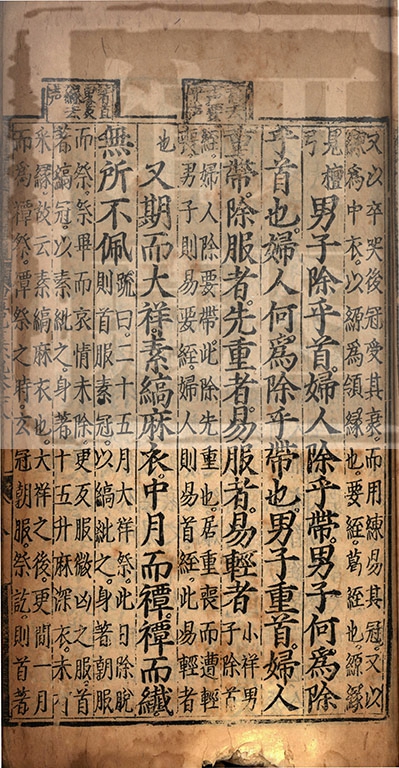 又以卒哭後冠受其衰而用練易其冠又以
練爲中衣以縓爲領緣也要絰葛絰也縓緣
見檀
弓
男子除乎首婦人除乎帶男子何爲除
乎首也婦人何爲除乎帶也男子重首婦人
重帶除服者先重者易服者易輕者
小祥男
子除首
絰婦人除要帶此除先重也居重喪而遭輕
喪男子則易要絰婦人則易首絰此易輕者
也
又期而大祥素縞麻衣中月而禫禫而纖
無所不佩
疏曰二十五月大祥祭此日除脫
則首服素冠以縞紕之身著朝服
而祭祭畢而哀情未除更反服微凶之服首
著縞冠以素紕之身著十五升麻深衣未
采緣故云素縞麻衣也大祥之後更間一月
而爲禫祭禫祭之時玄冠朝服祭訖則首著